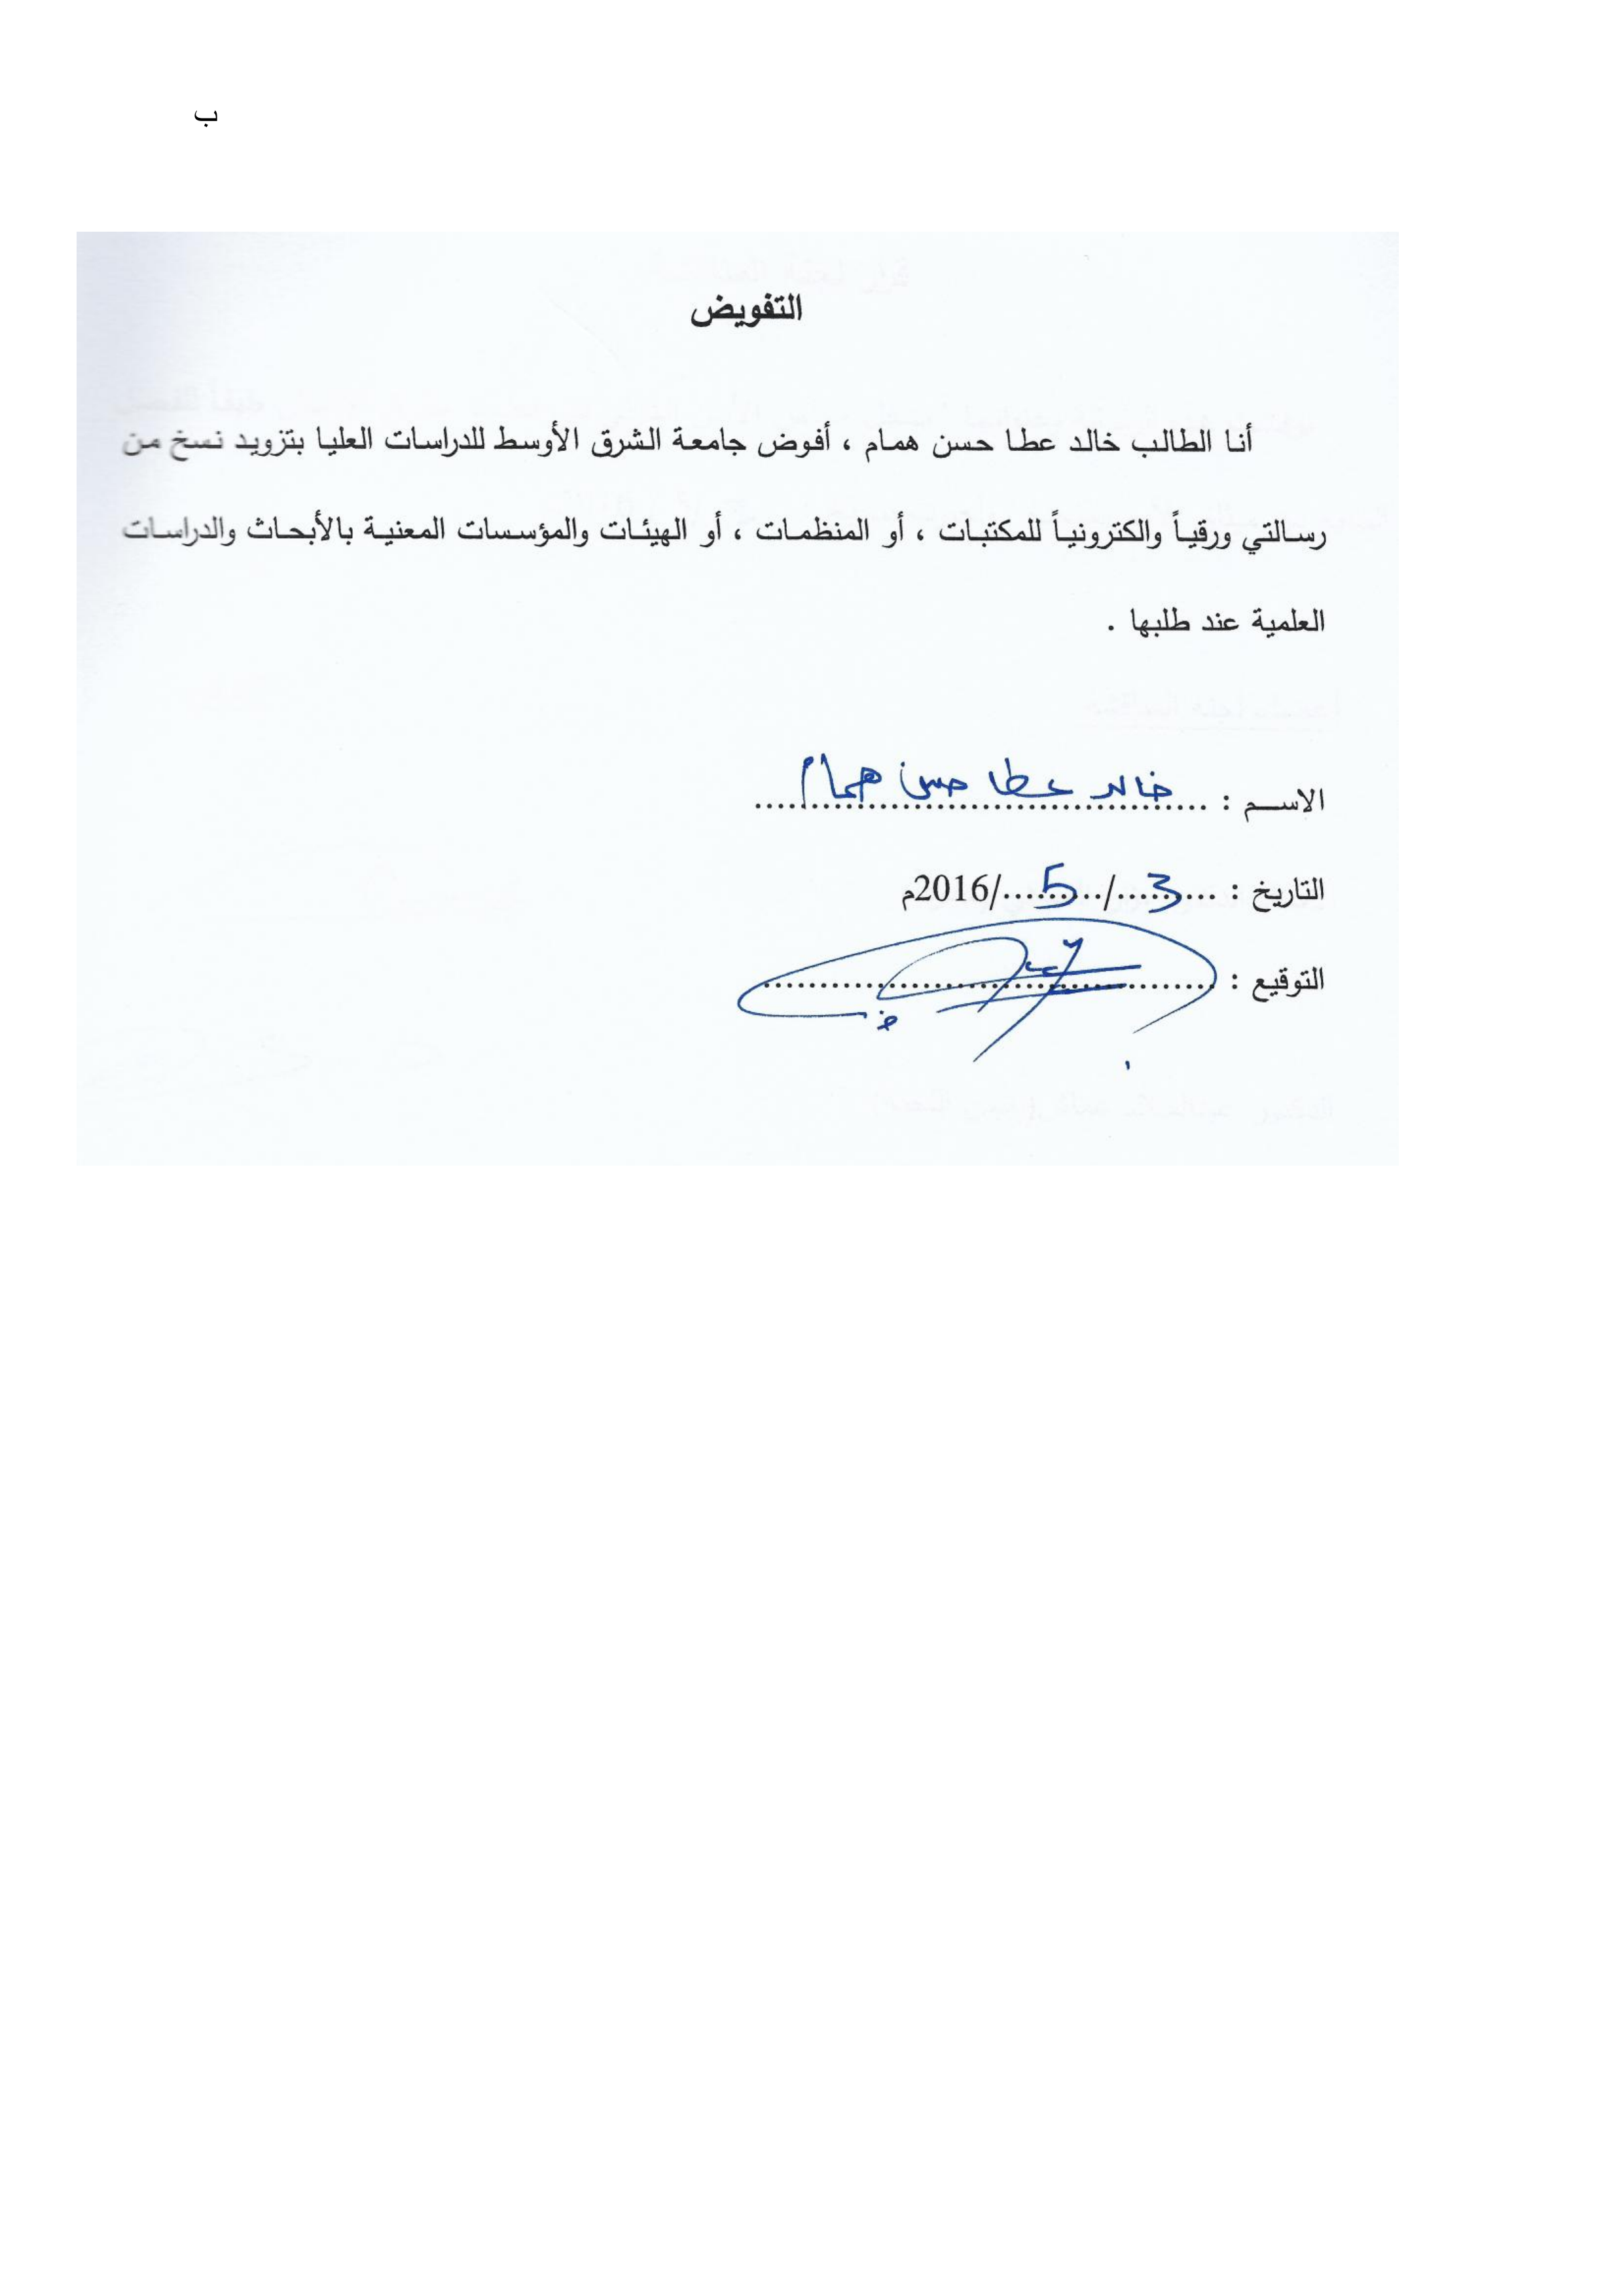 ب
التفويض
أنا الطالب خالد عطا حسن همام ، أفوض جامعة الشرق الأوسط للدراسات العليا بتزويد نسخ من
رسالتي ورقياً والكترونياً للمكتبات ، أو المنظمات ، أو الهيئات والمؤسسات المعنية بالأبحاث والدراسات
العلمية عند طلبها .
الاسم : خالد عطا حسن همام
التاريخ : 3/5/2016م
التوقيع :